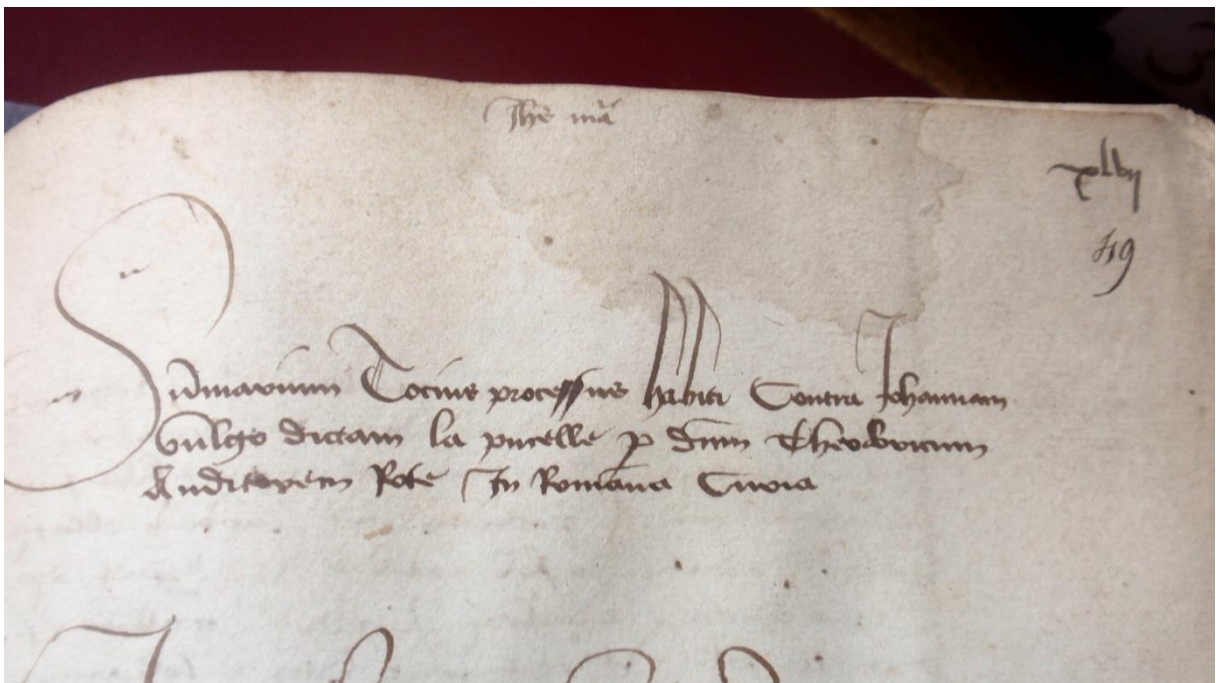 Jhs mā
xlvii
49
Sūmarium Tocius processus habiti Contra Johannam
vulgo dictam la pucelle p dn̄m Theodoricum
Auditorem Rote In Romana Curia